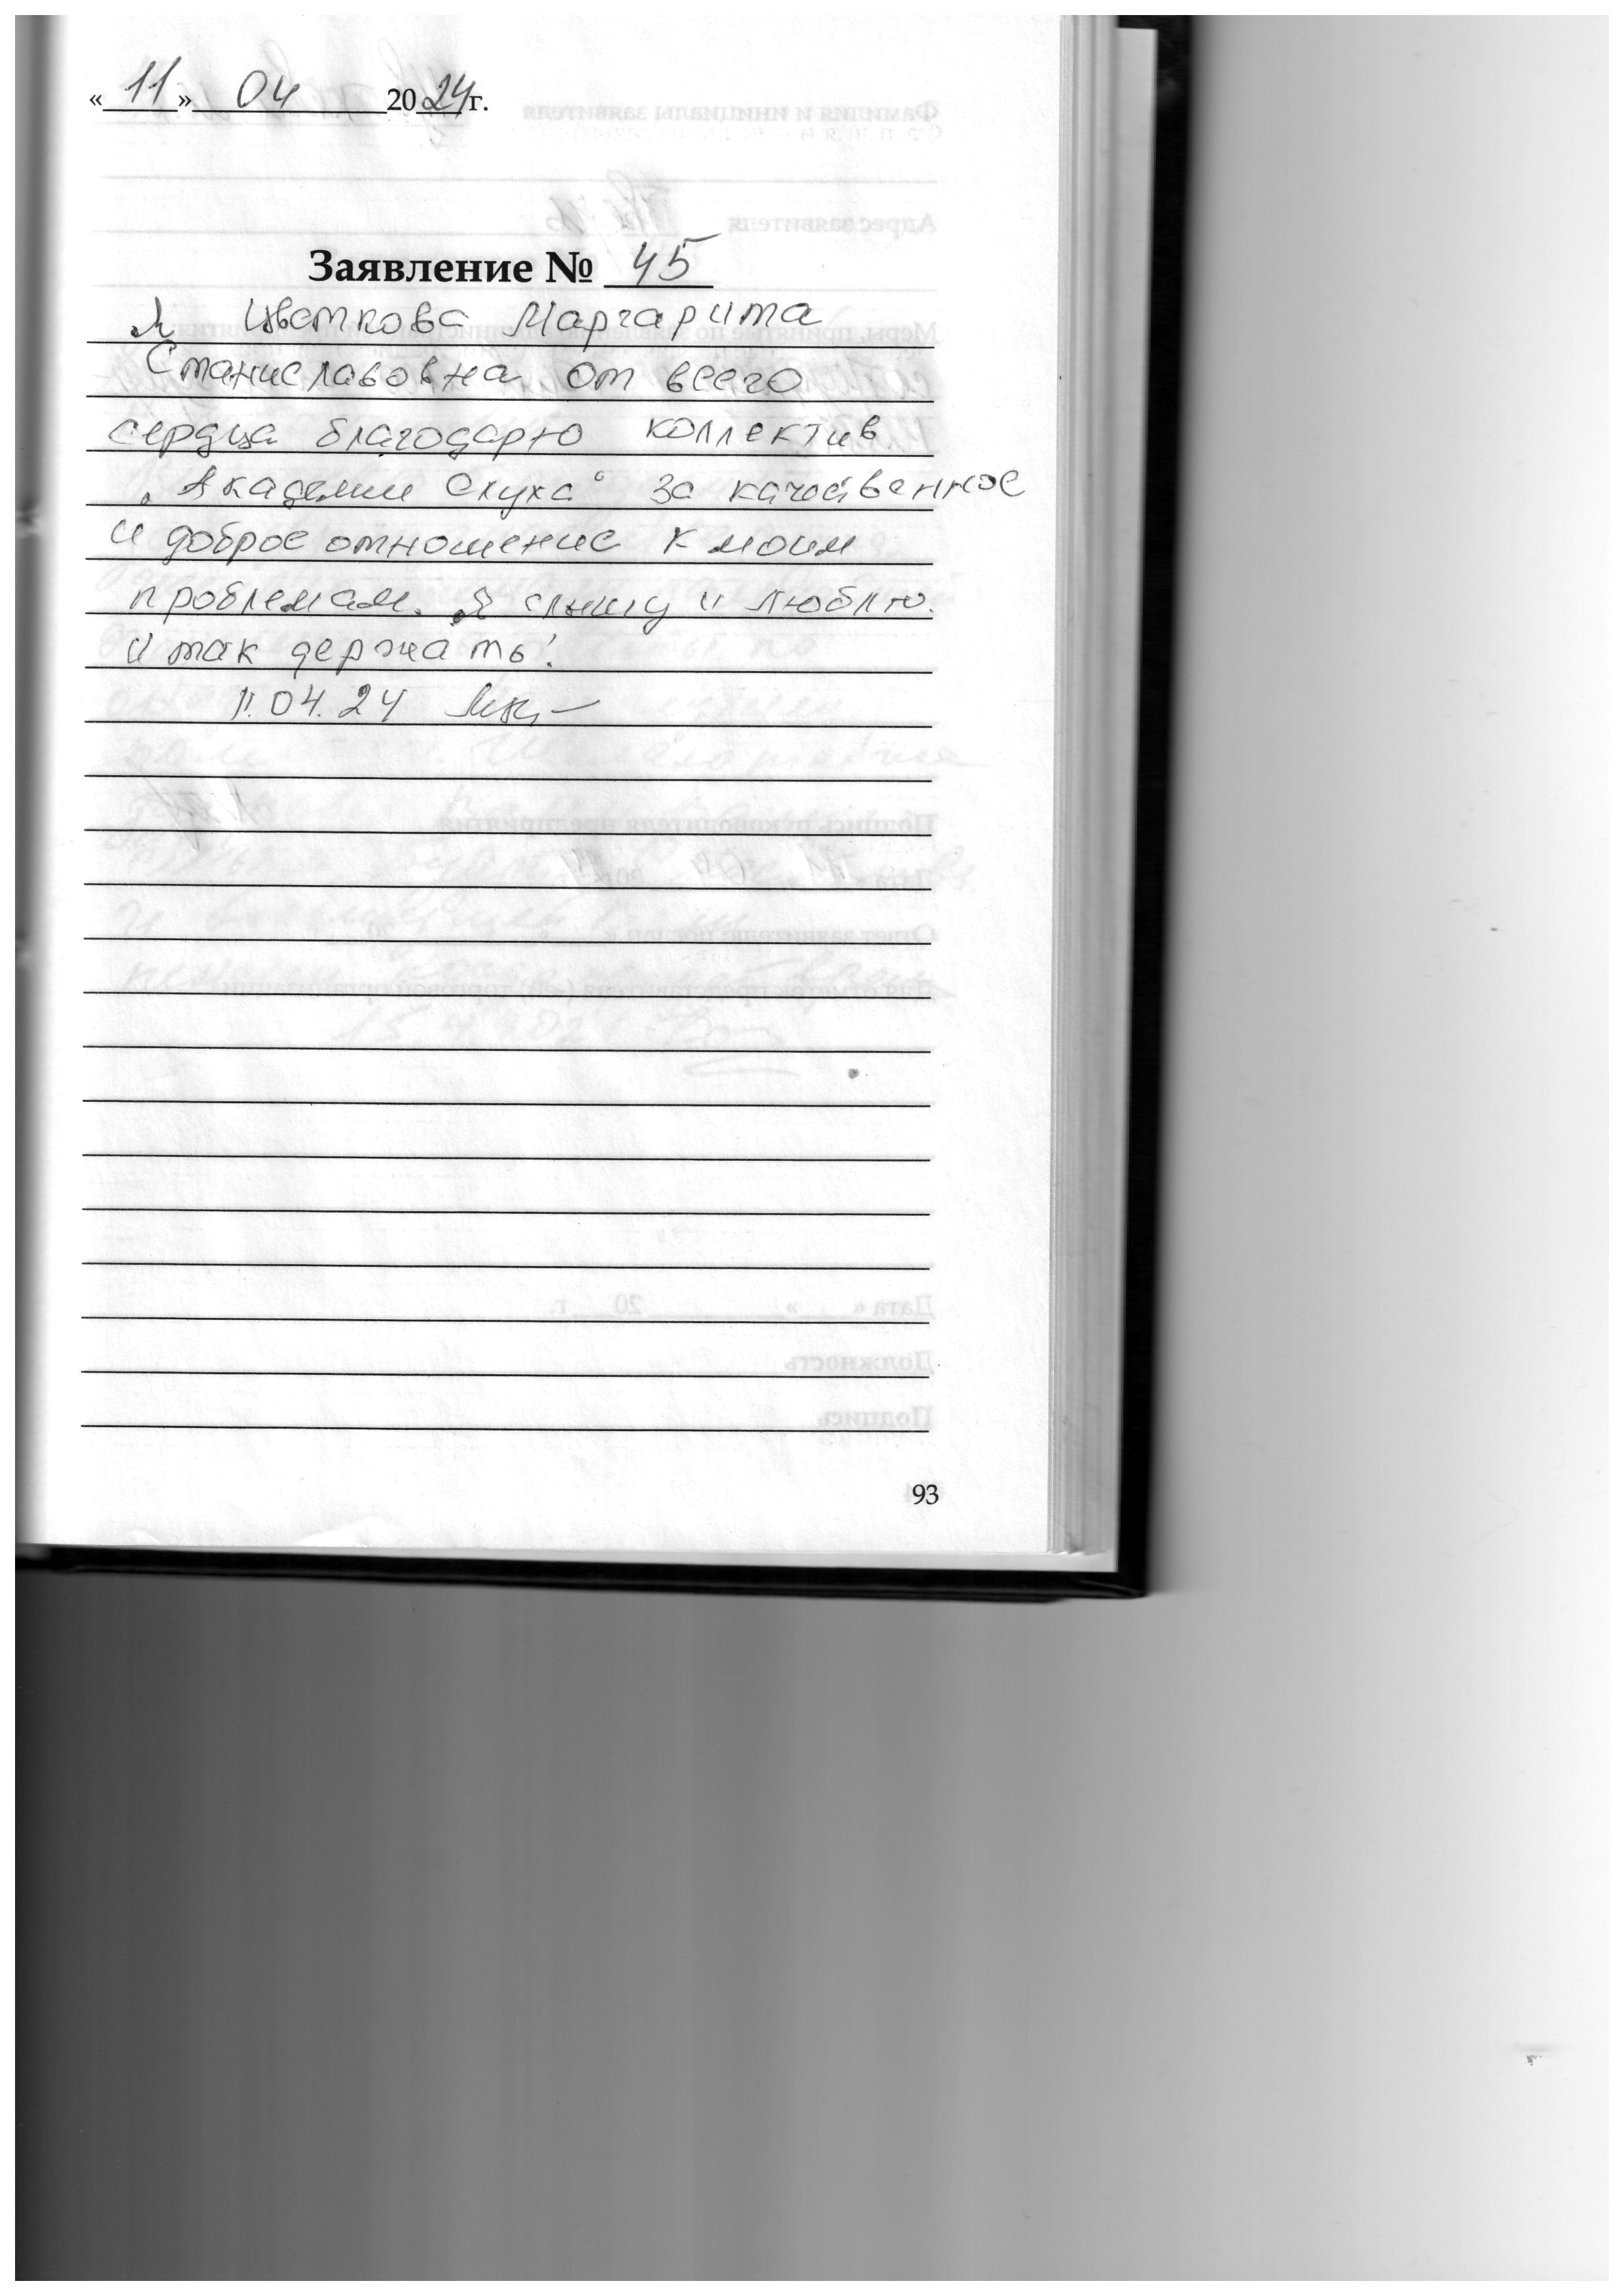 «11» 04 2024г.
Заявление № 45
Я Цветкова Маргарита
Станиславовна от всего
сердца благодарю коллектив
„Академии Слуха“ за качественное
и доброе отношение к моим
проблемам. Я слышу и люблю.
И так держать!
11.04.24
93